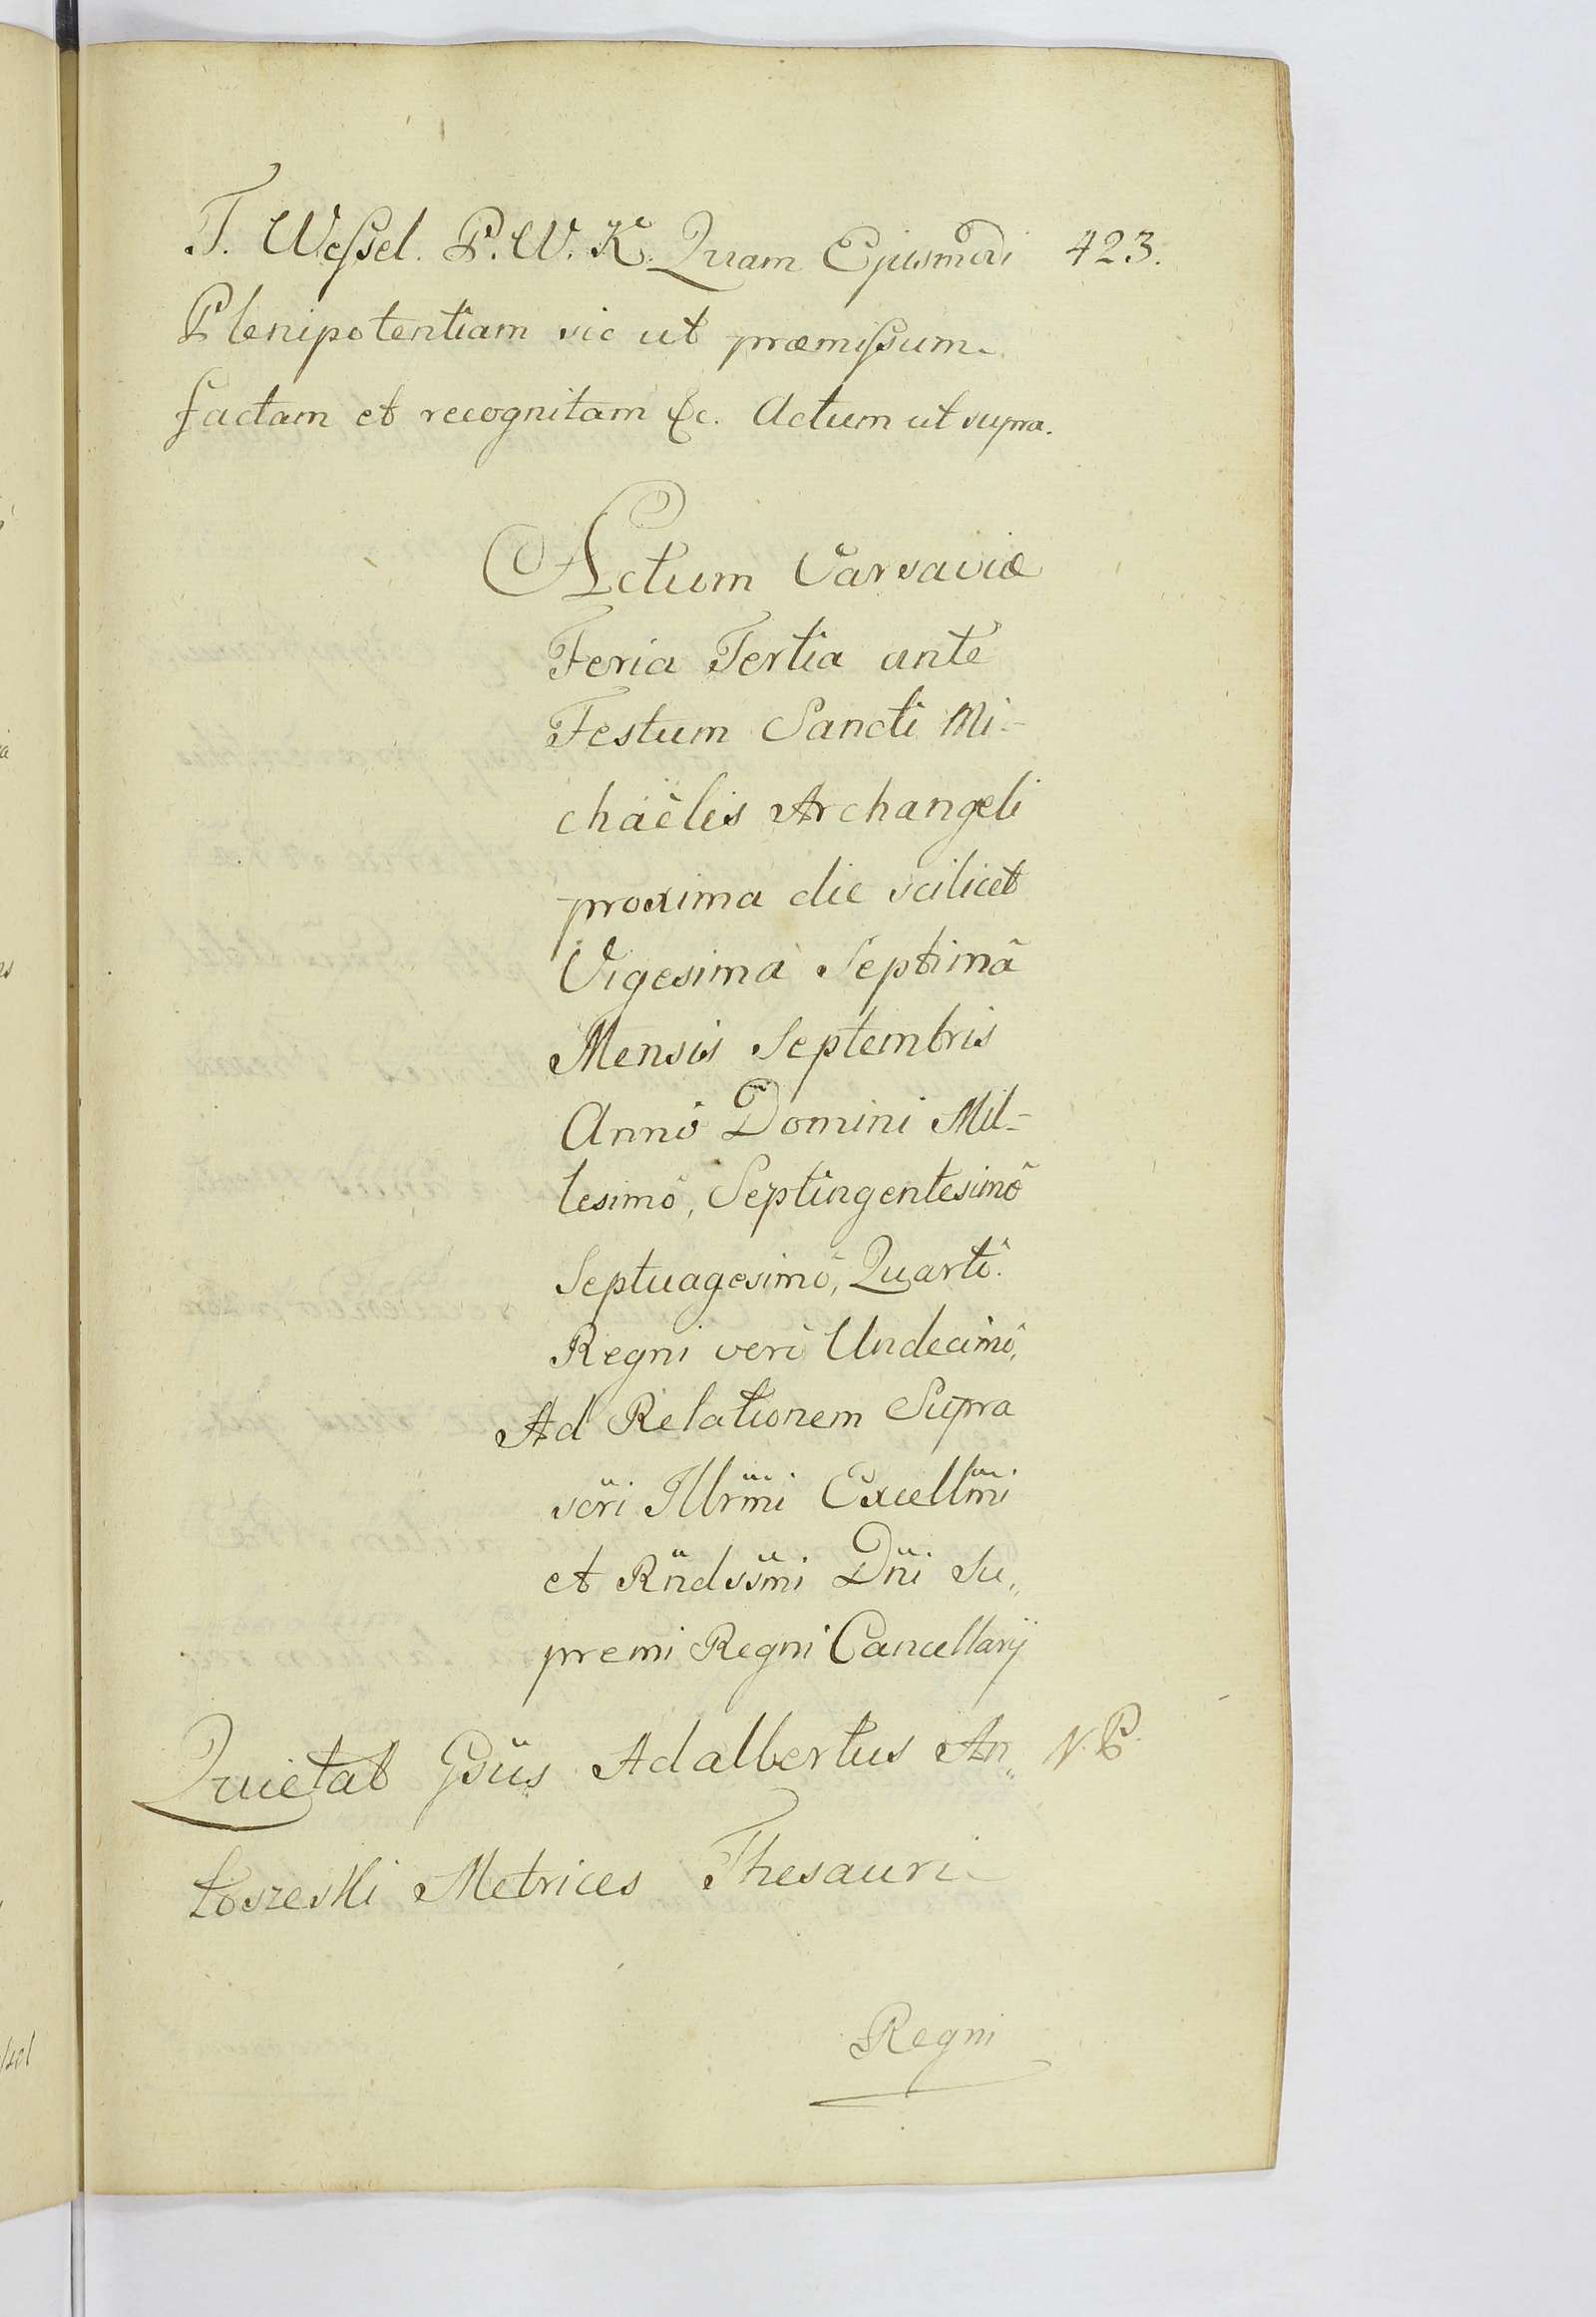 T. Wessel. P. W. K. Quam Ejusmodi 423.
Plenipotentiam sic ut præmissum
factam et recognitam &c. Actum ut supra.
Actum Varsaviæ
Feria Tertia ante
Festum Sancti Mi-
chaëlis Archangeli
proxima die scilicet
Vigesima Septimâ
Mensis Septembris
Annô Domini Mil-
lesimô, Septingentesimô
Septuagesimô, Quartô.
Regni verò Undecimô,
Ad Relationem Supra
scri Illrmi Excellmi
et Rndssmi Dni Su„
premi Regni Cancellarij
Quietat Gsus Adalbertus An„ N. P.
toszeski Metrices Thesauri
Regni